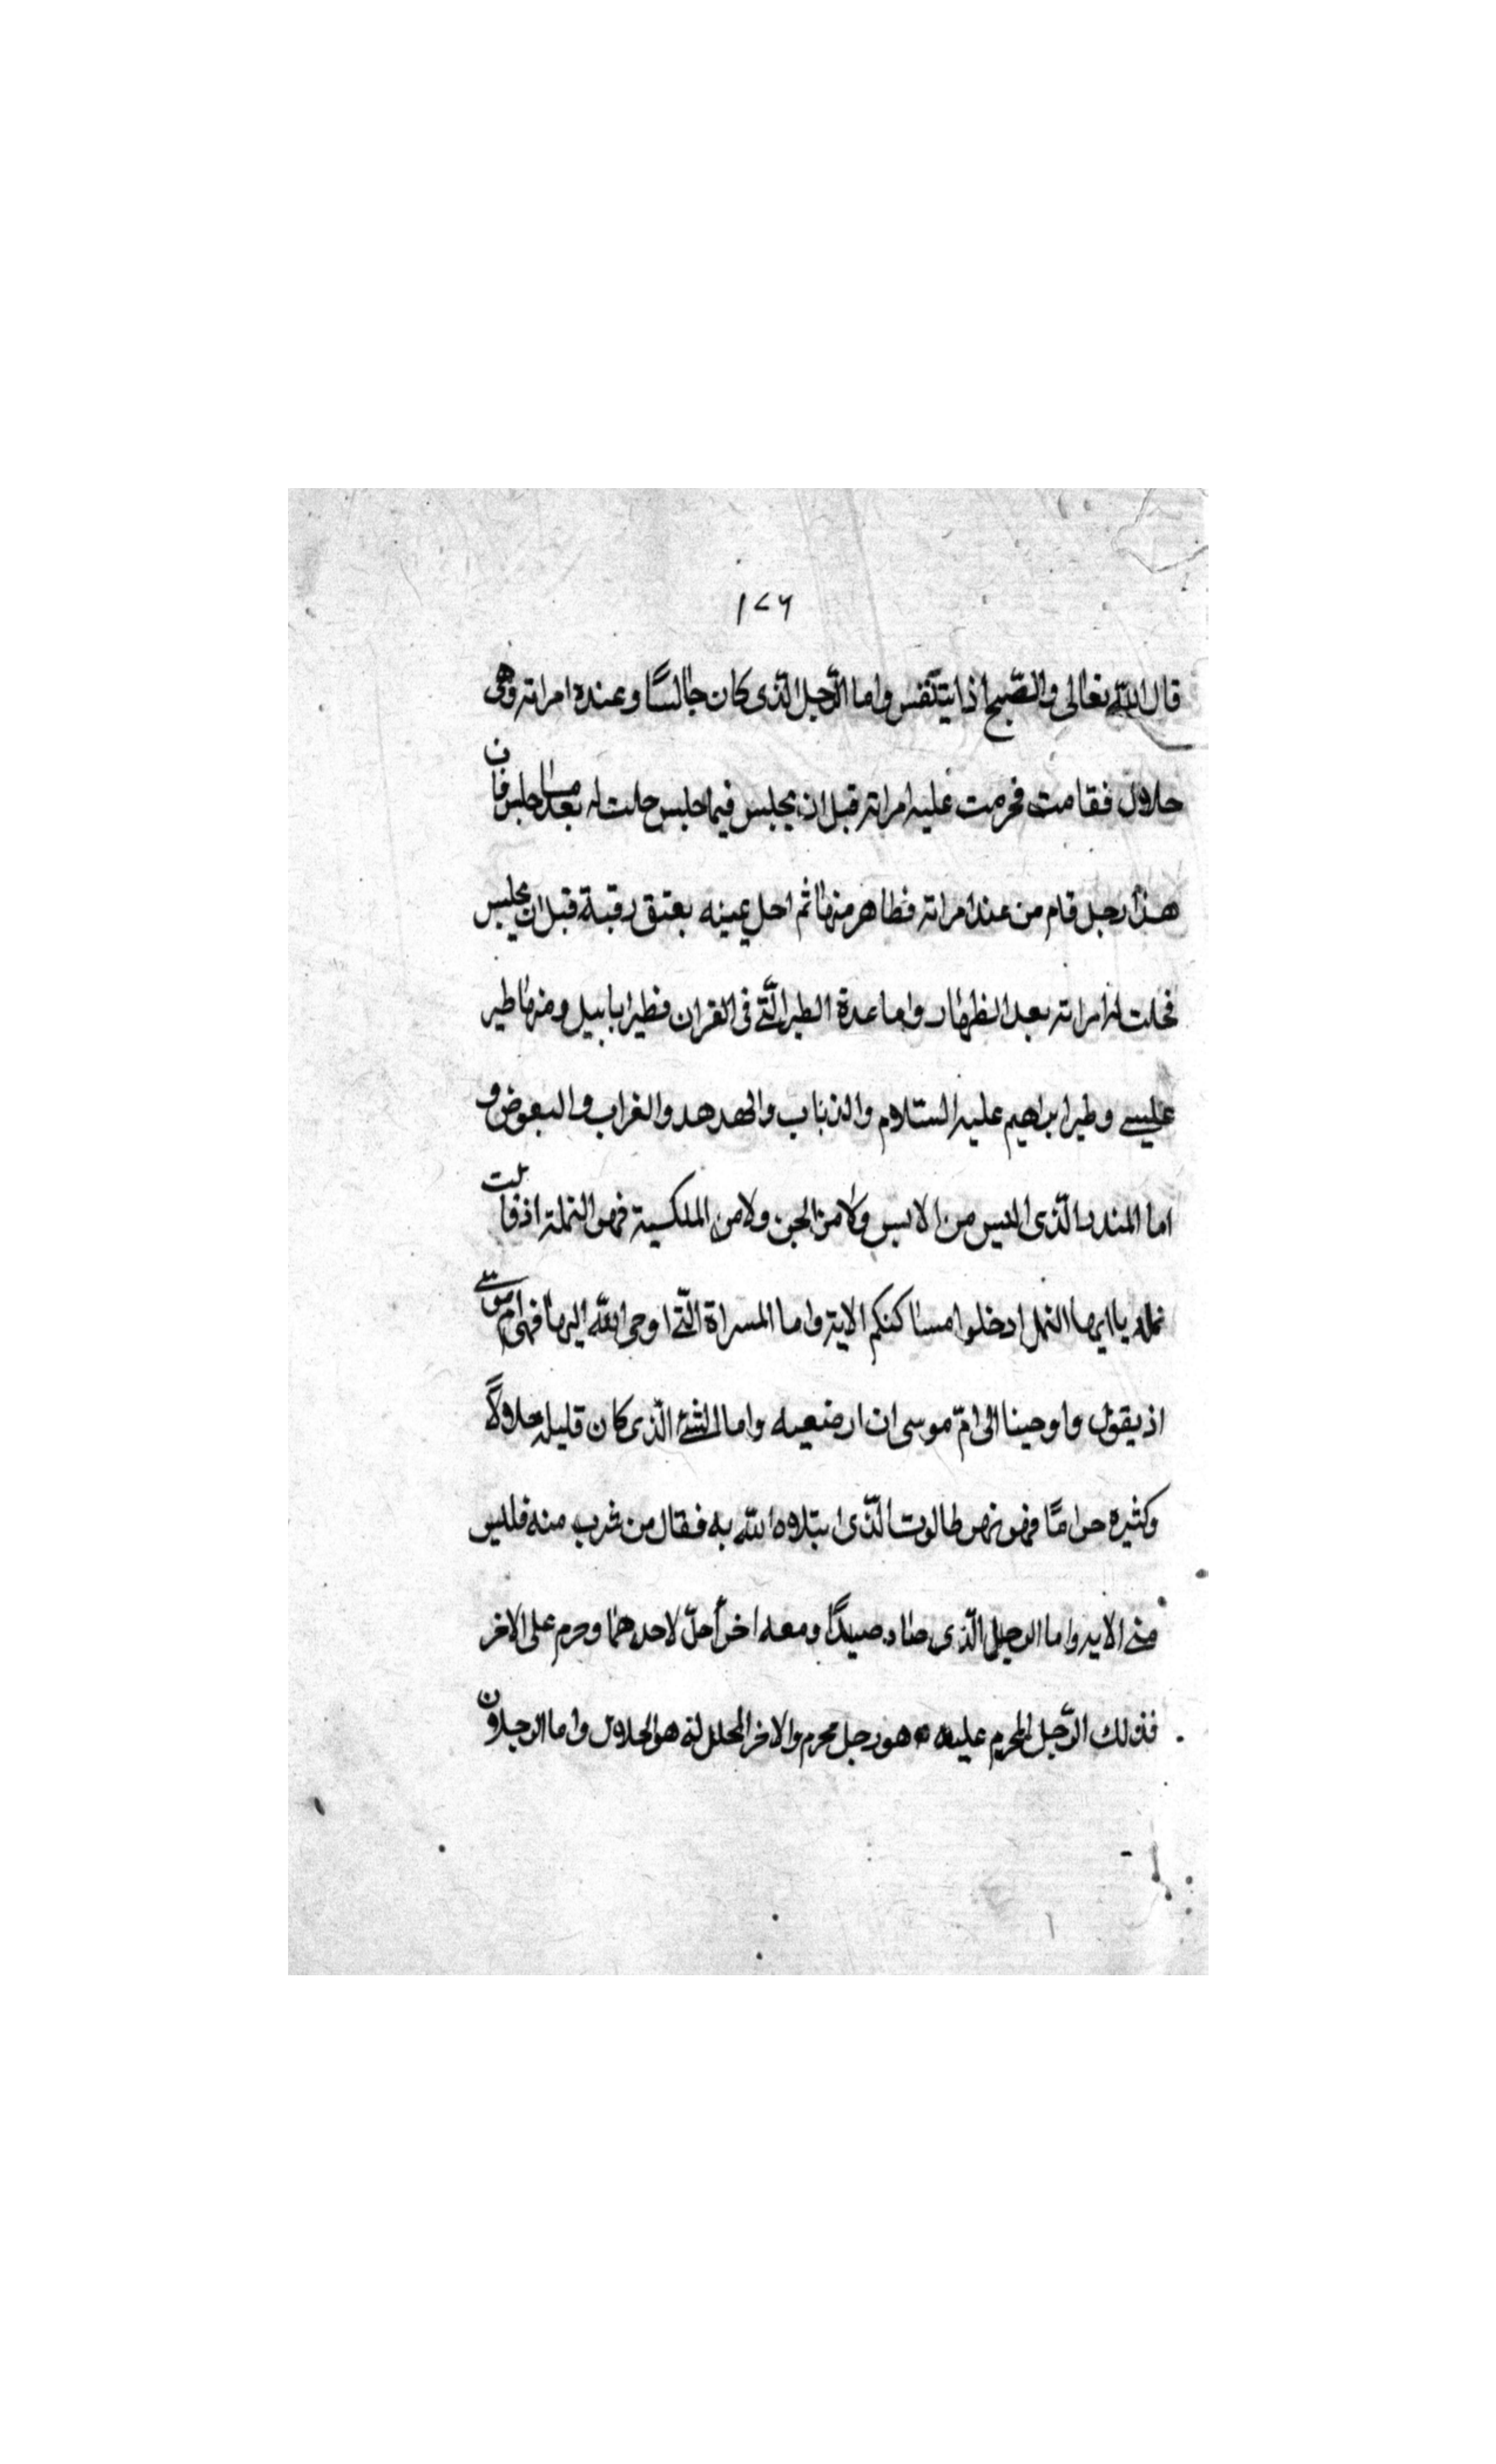 ١٧٦
قال الله تعالى والصّبح اذا يتنفّس واما الرّجل الّذى كان جالسًا وعنده امراته وهى
حلال فقامت فحرمت عليه امراته قبل ان يجلس فيما جلس حلت له بعد جلس فان
هذا رجل قام من عند امراته فظاهر منها ثم احل يمينه بعتق رقبة قبل ان يجلس
فحلت له امراته بعد الظهار واما عدة الطير الّتى فى القران فطيرا بابيل ومنها طير
عليسى وطير ابراهيم عليه السّلام والذباب والهدهد والغراب والبعوض و
اما المنذر الّذى اليس من الانس ولا من الجن ولا من الملكية فهو النملة اذ قالت
نملة يا ايها النمل ادخلوا مساكنكم الاية واما المسراة الّتى اوحى الله اليها فهى ام موسى
اذ يقول واوحينا الى امّ موسى ان ارضعيه واما الشئ الّذى كان قليله حلالًا
وكثيره حرامًا فهو نهر طالوت الّذى ابتلاه الله به فقال من شرب منه فليس
منى الاية واما الرجل الّذى صاد صيدًا ومعه اخر أحلّ لاحدهما وحرم على الاخر
فذلك الرّجل المحرم عليه هو رجل محرم والاخر المحلل له هو الحلال واما الرجلان